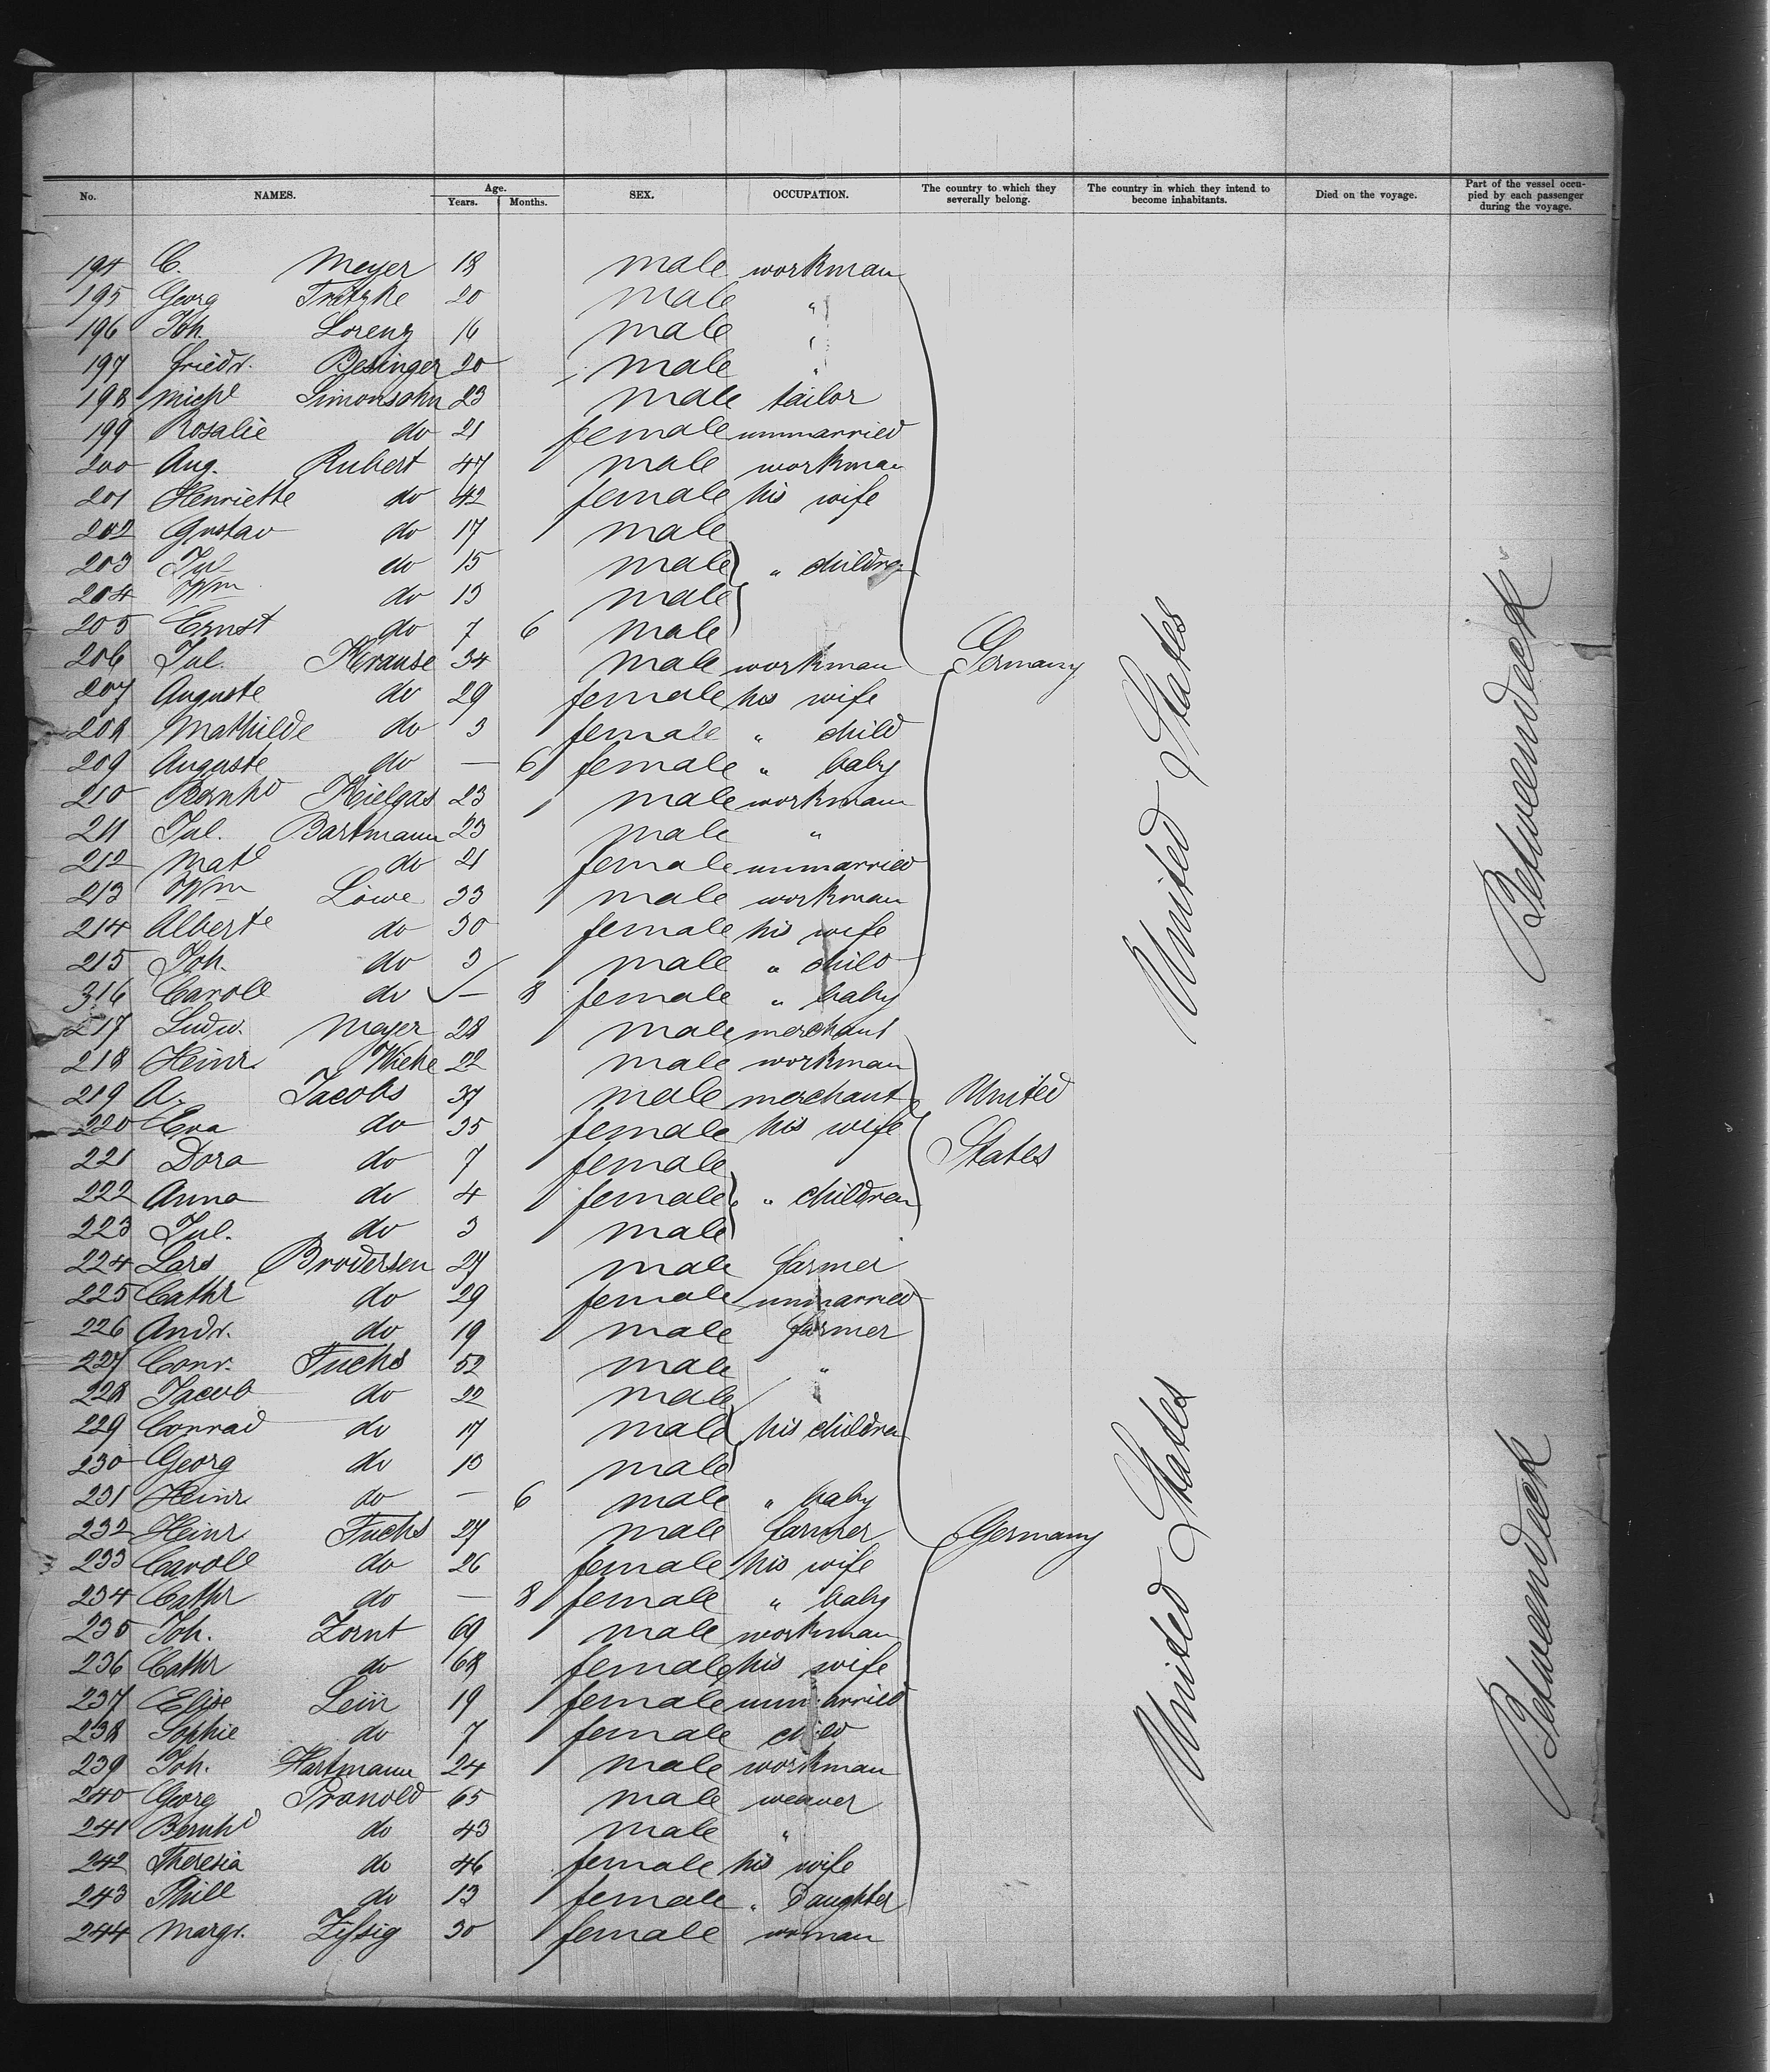 No. NAMES. Age. Years. Months. SEX. OCCUPATION. The country to which they severally belong. The country in which they intend to become inhabitants. Died on the voyage. Part of the vessel occupied by each passenger during the voyage.
194 C. Meyer 18 male workman
195 Georg Tratzke 20 male "
196 Joh. Lorenz 16 male "
197 Friedr. Besinger 20 male "
198 Michl Simonsohn 23 male tailor
199 Rosalie do 21 female unmarried
200 Aug. Rubert 47 male workman
201 Henriette do 42 female his wife
202 Gustav do 17 male
203 Jul do 15 male " children
204 Wm do 13 male
205 Ernst do 7 6 male
206 Jul. Krause 34 male workman Germany
207 Auguste do 29 female his wife
208 Mathilde do 3 female " child
209 Auguste do — 6 female " baby
210 Bernhd Kjelgas 23 male workman
211 Jul. Bartmann 23 male "
212 Matd do 21 female unmarried
213 Wm Löwe 33 male workman
214 Alberte do 30 female his wife
215 Joh. do 3 male " child
316 Caroll do — 8 female " baby
217 Ludw. Meyer 28 male merchant
218 Heinr. Wieke 22 male workman
219 A. Jacobs 37 male merchant United
220 Eva do 35 female his wife
221 Dora do 7 female States
222 Anna do 4 female " children
223 Jul. do 3 male
224 Lars Brodersen 27 male farmer
225 Cathr do 29 female unmarried
226 Andr. do 19 male farmer
227 Conr. Fuchs 52 male "
228 Jacob do 22 male
229 Conrad do 17 male his children
230 Georg do 13 male
231 Heinr. do — 6 male " baby
232 Heinr Fuchs 27 male farmer Germany
233 Caroll do 26 female his wife
234 Cathr do — 8 female " baby
235 Joh. Zornt 69 male workman
236 Cathr do 68 female his wife
237 Elise Lein 19 female unmarried
238 Sophie do 7 female child
239 Joh. Hartmann 24 male workman
240 Georg Pranold 65 male weaver
241 Bernhd do 43 male "
242 Theresia do 46 female his wife
243 Phill do 13 female " Daughter
244 Margr. Zissig 30 female woman
United States
Betweendeck
United States
Betweendeck